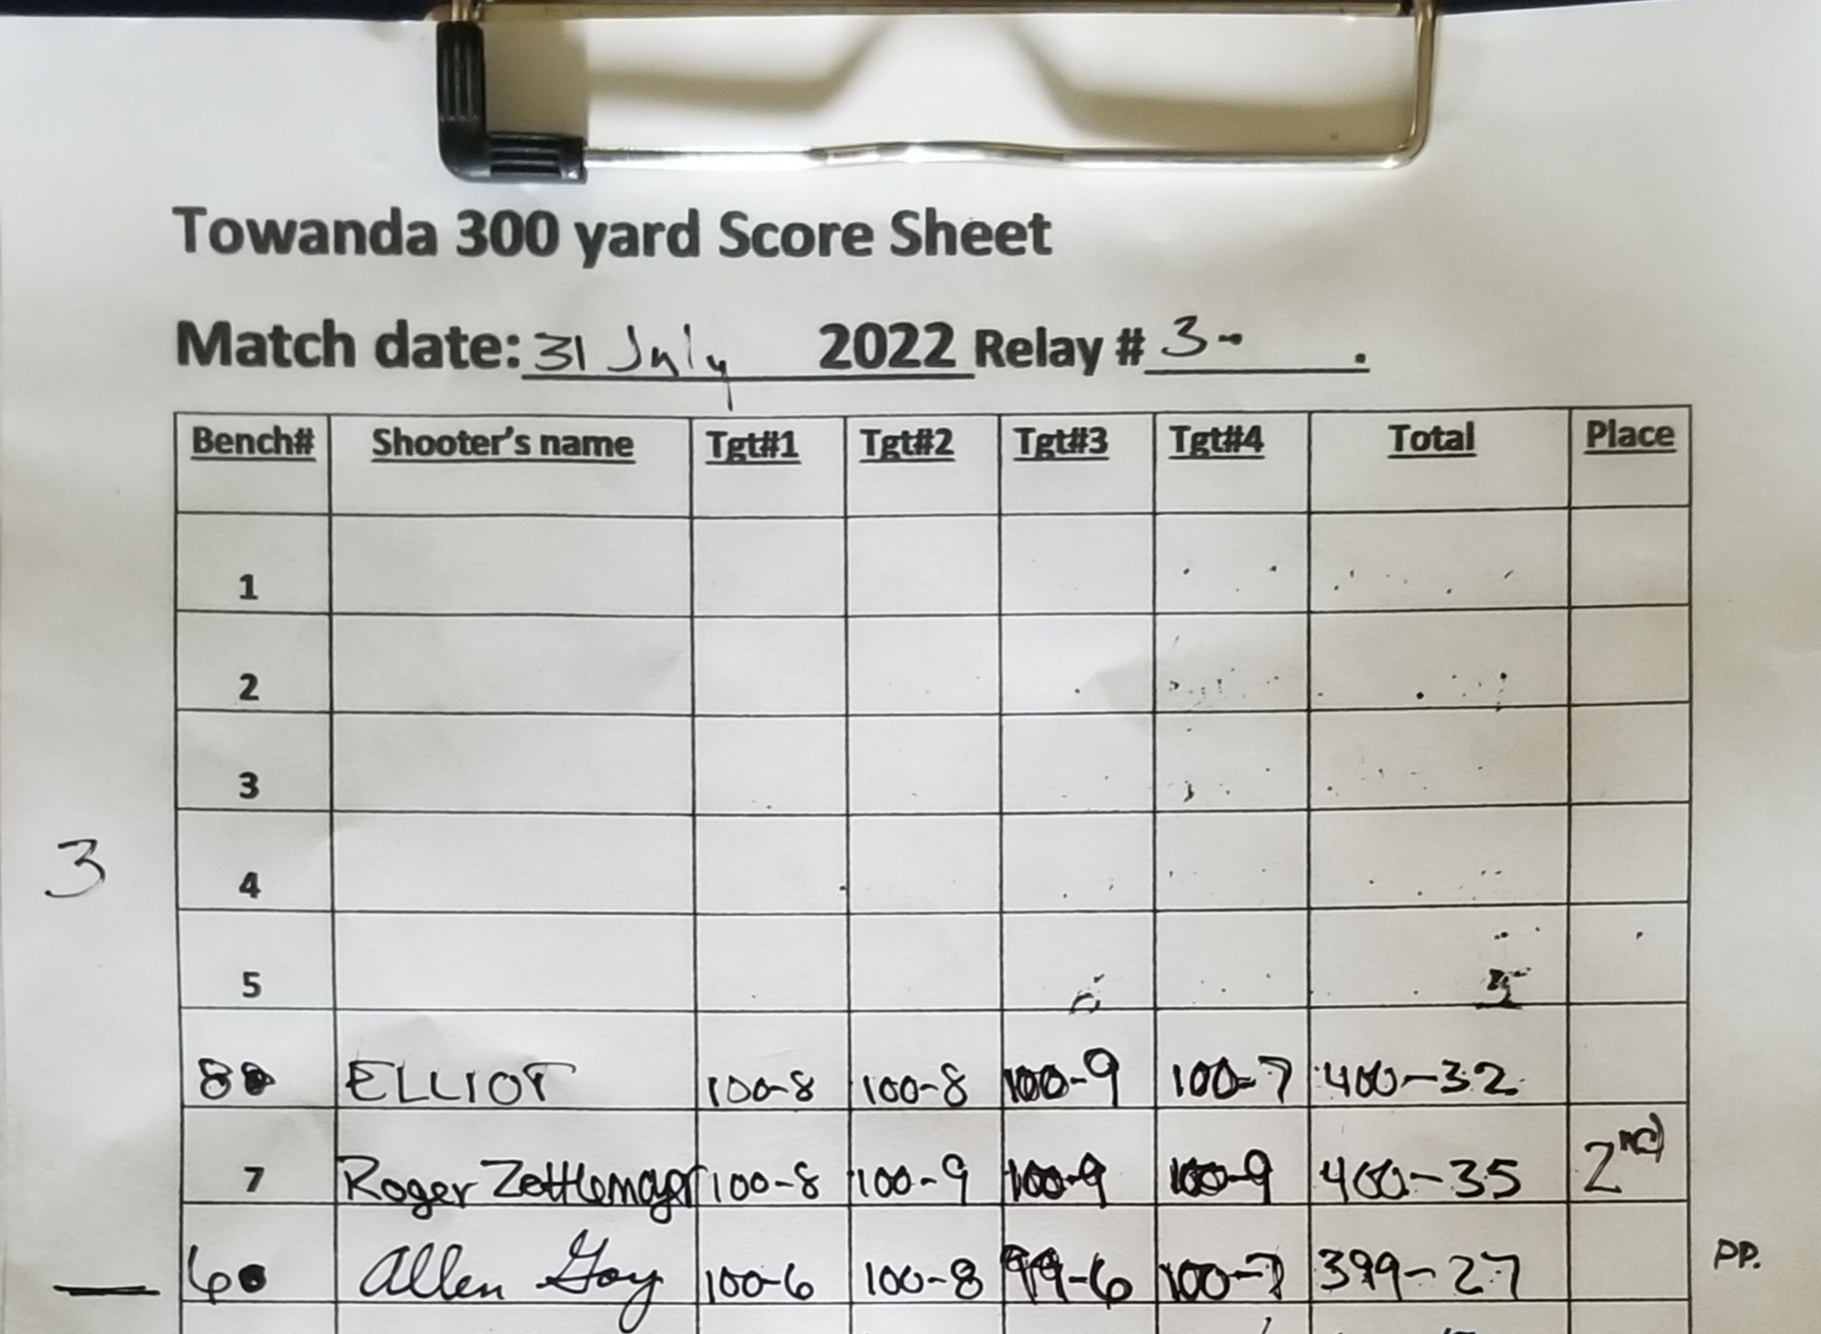 Towanda 300 yard Score Sheet
Match date: 31 July 2022 Relay # 3 .
Bench# Shooter's name Tgt#1 Tgt#2 Tgt#3 Tgt#4 Total Place
1
2
3
3
4
5
8 ELLIOT 100-8 100-8 100-9 100-7 400-32
7 Roger 100-8 100-9 100-9 100-9 400-35 2nd
6 Allen Goy 100-6 100-8 99-6 100-7 399-27 PP.